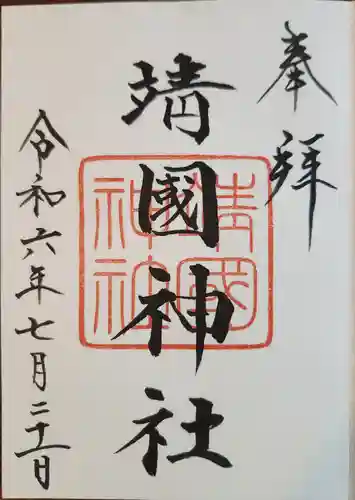 奉拜
靖國神社
靖國神社
令和六年七月二十一日